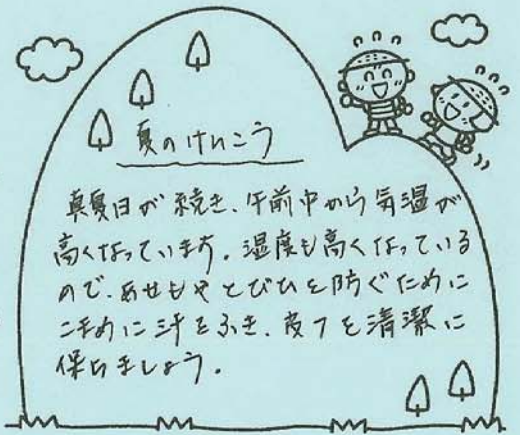 夏のけんこう
真夏日が続き、午前中から気温が
高くなっています。湿度も高くなっている
ので、あせもやとびひを防ぐために
こまめに汗をふき、皮フを清潔に
保ちましょう。